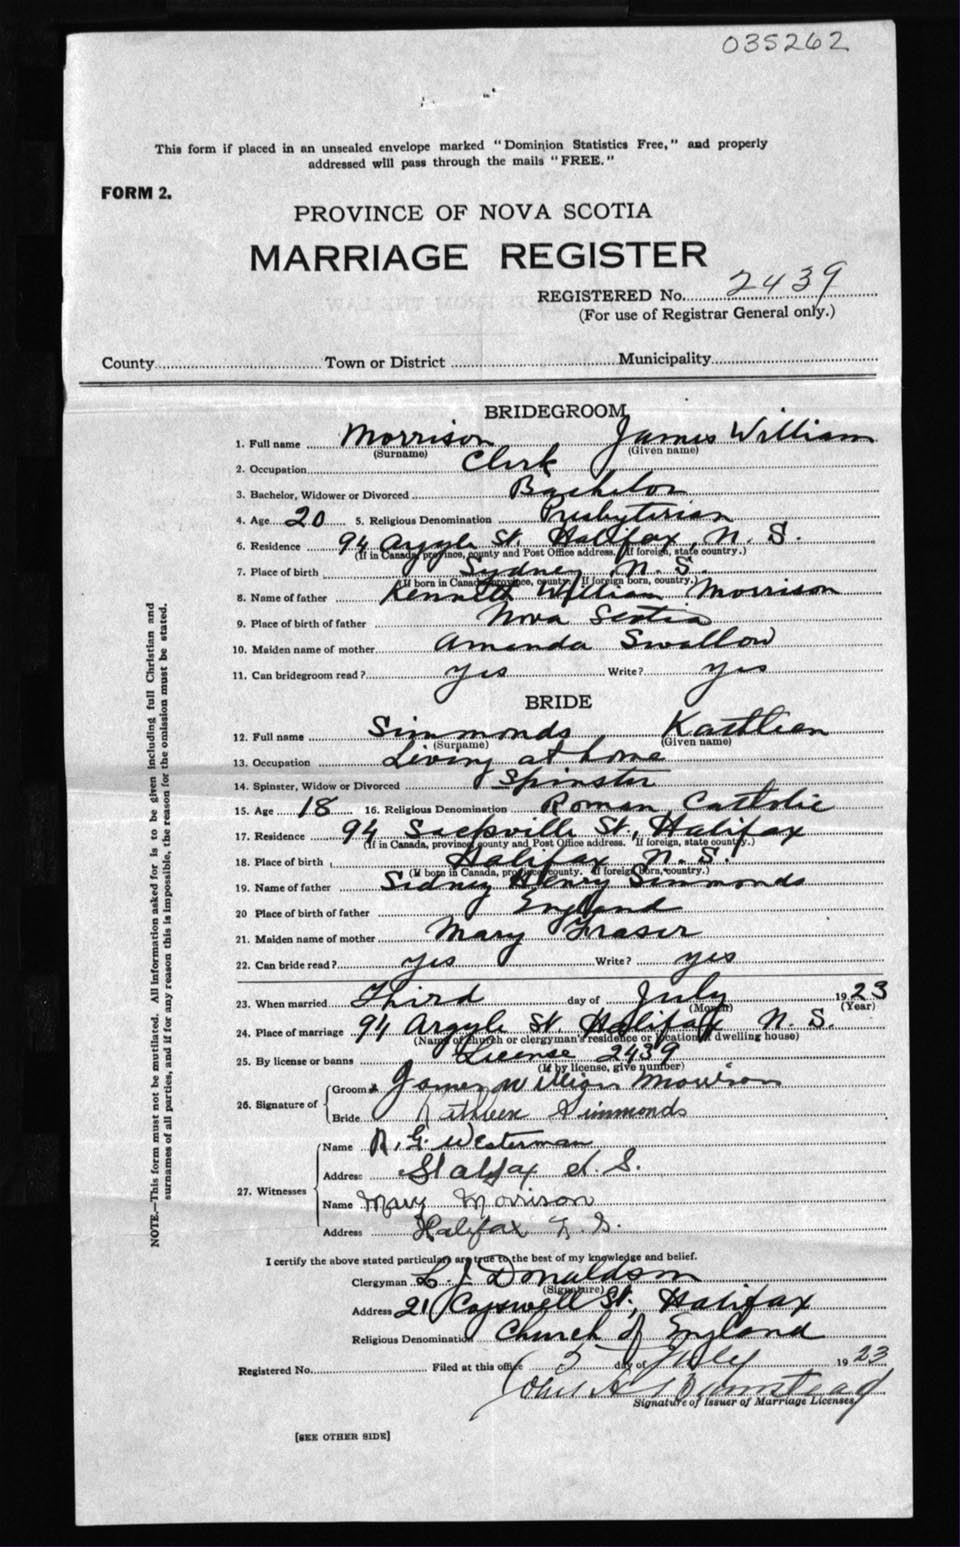 035262
This form if placed in an unsealed envelope marked "Dominion Statistics Free," and properly
addressed will pass through the mails "FREE."
FORM 2.
PROVINCE OF NOVA SCOTIA
MARRIAGE REGISTER
REGISTERED No. 2439
(For use of Registrar General only.)
County Town or District Municipality
BRIDEGROOM
1. Full name Morrison James William
(Surname) (Given name)
2. Occupation Clerk
3. Bachelor, Widower or Divorced Bachelor
4. Age 20 5. Religious Denomination Presbyterian
6. Residence 94 Argyle St. Halifax, N. S.
(If in Canada, province, county and Post Office address. If foreign, state country.)
7. Place of birth Sydney N. S.
(If born in Canada, province, county. If foreign born, country.)
8. Name of father Kenneth William Morrison
9. Place of birth of father Nova Scotia
10. Maiden name of mother Amanda Swallow
11. Can bridegroom read? yes Write? yes
BRIDE
12. Full name Simmonds Kathleen
(Surname) (Given name)
13. Occupation Living at home
14. Spinster, Widow or Divorced Spinster
15. Age 18 16. Religious Denomination Roman Catholic
17. Residence 94 Sackville St., Halifax
(If in Canada, province, county and Post Office address. If foreign, state country.)
18. Place of birth Halifax N. S.
(If born in Canada, province, county. If foreign born, country.)
19. Name of father Sidney Henry Simmonds
20 Place of birth of father England
21. Maiden name of mother Mary Fraser
22. Can bride read? yes Write? yes
23. When married Third day of July 1923
(Month) (Year)
24. Place of marriage 94 Argyle St Halifax N. S.
(Name of church or clergyman's residence or location of dwelling house)
25. By license or banns License 2439
(If by license, give number)
26. Signature of Groom James William Morrison
Bride Kathleen Simmonds
27. Witnesses Name R. G. Westerman
Address Halifax N. S.
Name Mary Morrison
Address Halifax N. S.
I certify the above stated particulars are true to the best of my knowledge and belief.
Clergyman L. J. Donaldson
(Signature)
Address 21 Cogswell St., Halifax
Religious Denomination Church of England
Registered No. Filed at this office 5 day of July 1923
John A
Signature of Issuer of Marriage Licenses
[SEE OTHER SIDE]
NOTE.—This form must not be mutilated. All information asked for is to be given including full Christian and
surnames of all parties, and if for any reason this is impossible, the reason for the omission must be stated.